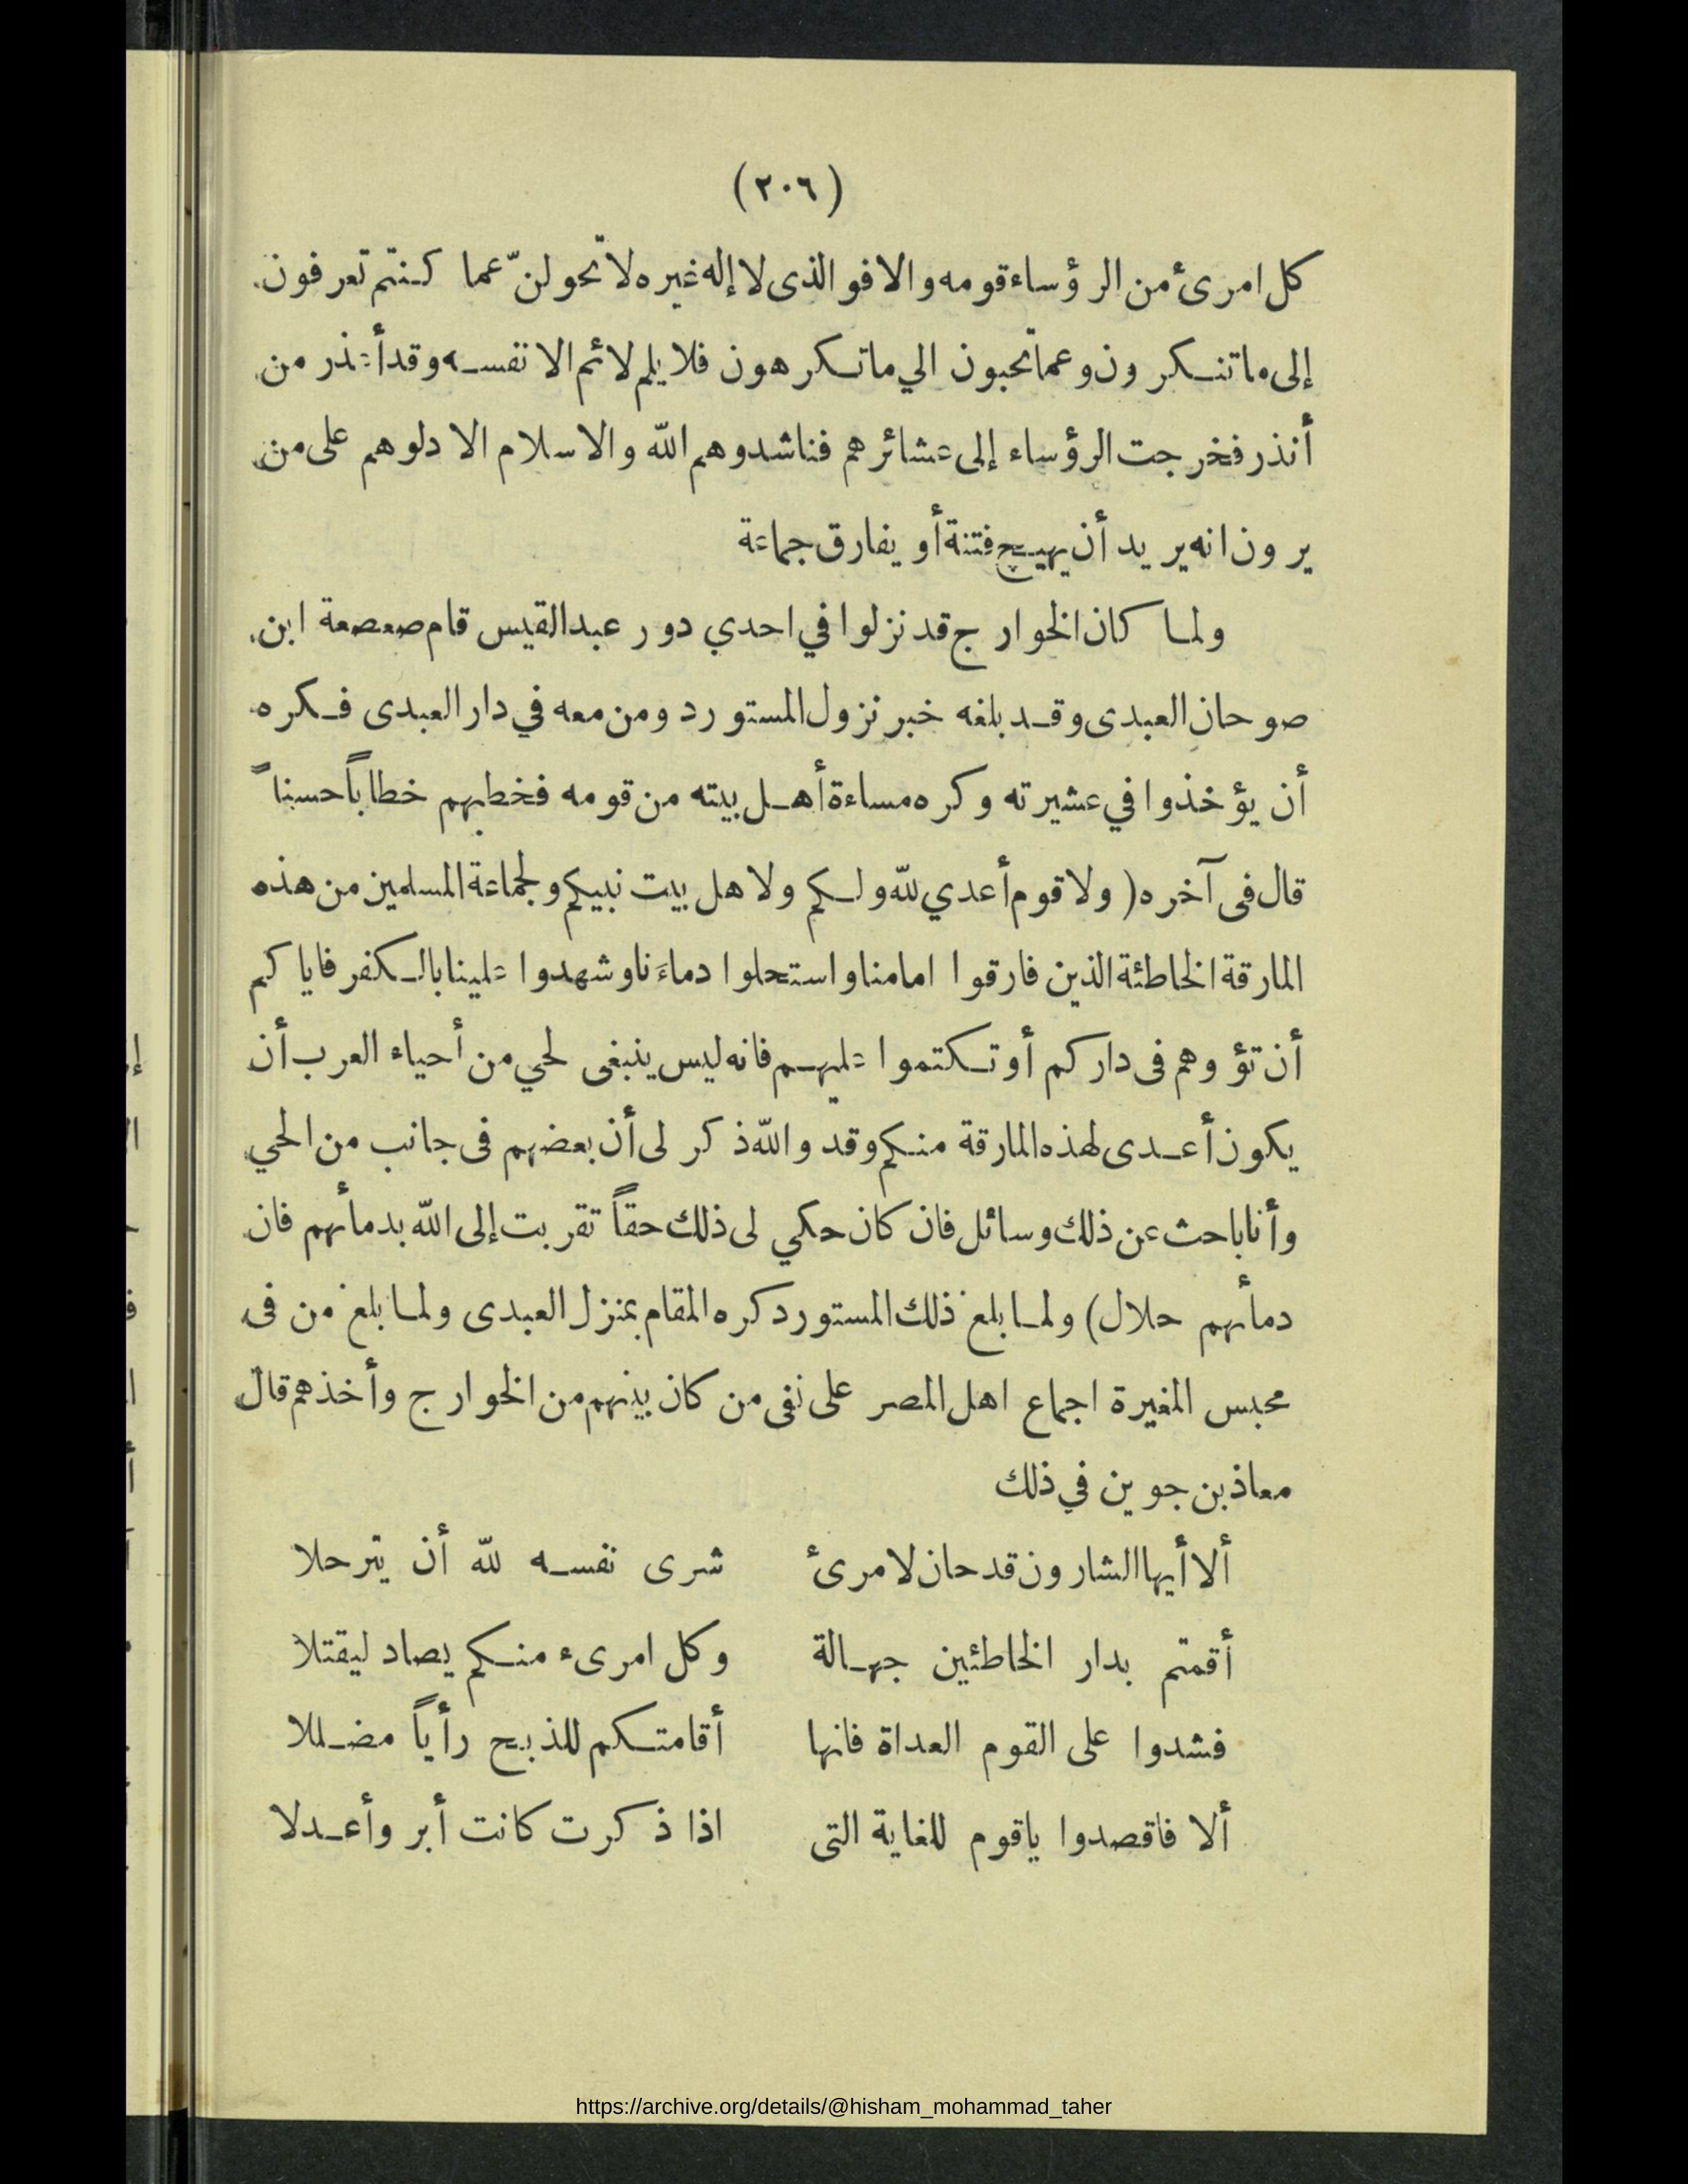 (٢٠٦)
كل امرئ من الرؤساء قومه والا فو الذى لا إله غيره لا تحولنّ عما كنتم تعرفون
إلى ما تنكرون وعما تحبون الي ما تكرهون فلا يلم لائم الا نفسه وقد أعذر من
أنذر فخرجت الرؤساء إلى عشائرهم فناشدوهم الله والاسلام الا دلوهم على من
يرون انه يريد أن يهيج فتنة أو يفارق جماعة
ولما كان الخوارج قد نزلوا في احدي دور عبد القيس قام صعصعة ابن
صوحان العبدى وقد بلغه خبر نزول المستورد ومن معه في دار العبدى فكره
أن يؤخذوا في عشيرته وكره مساءة أهل بيته من قومه فخطبهم خطاباً حسناً
قال فى آخره ( ولا قوم أعدي لله ولكم ولاهل بيت نبيكم ولجماعة المسلمين من هذه
المارقة الخاطئة الذين فارقوا امامنا واستحلوا دماءَنا وشهدوا علينا بالكفر فاياكم
أن تؤوهم فى داركم أو تكتموا عليهم فانه ليس ينبغى لحي من أحياء العرب أن
يكون أعدى لهذه المارقة منكم وقد والله ذكر لى أن بعضهم فى جانب من الحي
وأنا باحث عن ذلك وسائل فان كان حكي لى ذلك حقاً تقربت إلى الله بدمأهم فان
دمأهم حلال) ولما بلغ ذلك المستورد كره المقام بمنزل العبدى ولما بلغ من فى
محبس المغيرة اجماع اهل المصر على نفى من كان بينهم من الخوارج وأخذهم قال
معاذ بن جوين في ذلك
ألا أيها الشارون قد حان لامرئ شرى نفسه لله أن يترحلا
أقمتم بدار الخاطئين جهالة وكل امرىء منكم يصاد ليقتلا
فشدوا على القوم العداة فانها أقامتكم للذبح رأياً مضللا
ألا فاقصدوا ياقوم للغاية التى اذا ذكرت كانت أبر وأعدلا
https://archive.org/details/@hisham_mohammad_taher